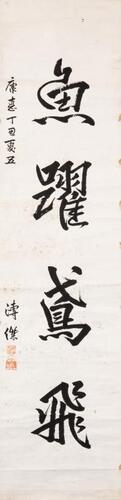 魚躍鳶飛
康德丁丑夏五
溥傑